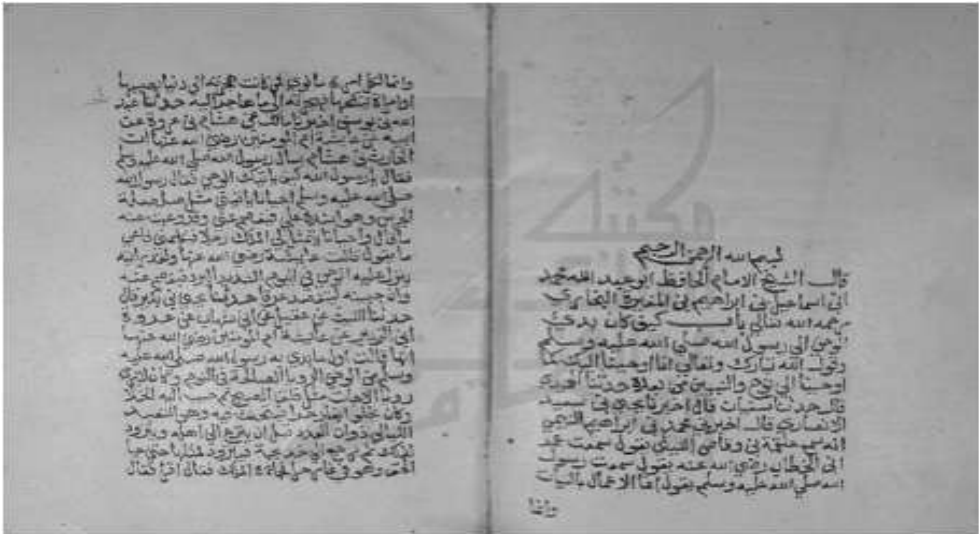 بسم الله الرحمن الرحيم
قال الشيخ الامام الحافظ ابو عبد الله محمد
ابن اسماعيل بن ابراهيم بن المغيرة البخاري
رحمه الله تعالى باب كيف كان بدئ
الوحي الى رسول الله صلى الله عليه وسلم
وقول الله تبارك وتعالى انا اوحينا اليك كما
اوحينا الى نوح والنبيين من بعده حدثنا الحميدي
قال حدثنا سفيان قال اخبرنا يحيى بن سعيد
الانصاري قال اخبرني محمد بن ابراهيم التيمي
انه سمع علقمة بن وقاص الليثي يقول سمعت عمر
ابن الخطاب رضي الله عنه يقول سمعت رسول
الله صلى الله عليه وسلم يقول انما الاعمال بالنيات
وانما
وانما لكل امرئ ما نوى فمن كانت هجرته الى دنيا يصيبها
او امراة ينكحها فهجرته الى ما هاجر اليه حدثنا عبد
الله بن يوسف اخبرنا مالك عن هشام بن عروة عن
ابيه عن عائشة ام المومنين رضي الله عنها ان
الحارث بن هشام سال رسول الله صلى الله عليه وسلم
فقال يا رسول الله كيف ياتيك الوحي فقال رسول الله
صلى الله عليه وسلم احيانا ياتيني مثل صلصلة
الجرس وهو اشده علي فيفصم عني وقد وعيت عنه
ما قال واحيانا يتمثل لي الملك رجلا فيكلمني فاعي
ما يقول قالت عائشة رضي الله عنها ولقد رايته
ينزل عليه الوحي في اليوم الشديد البرد فيفصم عنه
وان جبينه ليتفصد عرقا حدثنا يحيى بن بكير قال
حدثنا الليث عن عقيل عن ابن شهاب عن عروة
ابن الزبير عن عائشة ام المومنين رضي الله عنها
انها قالت اول ما بدئ به رسول الله صلى الله عليه
وسلم من الوحي الرويا الصالحة في النوم وكان لا يرى
رويا الا جاءت مثل فلق الصبح ثم حبب اليه الخلا
وكان يخلو بغار حرا فيتحنث فيه وهو التعبد
الليالي ذوات العدد قبل ان ينزع الى اهله ويتزود
لذلك ثم يرجع الى خديجة فيتزود لمثلها حتى جا
الحق وهو في غار حرا فجاءه الملك فقال اقرا فقال